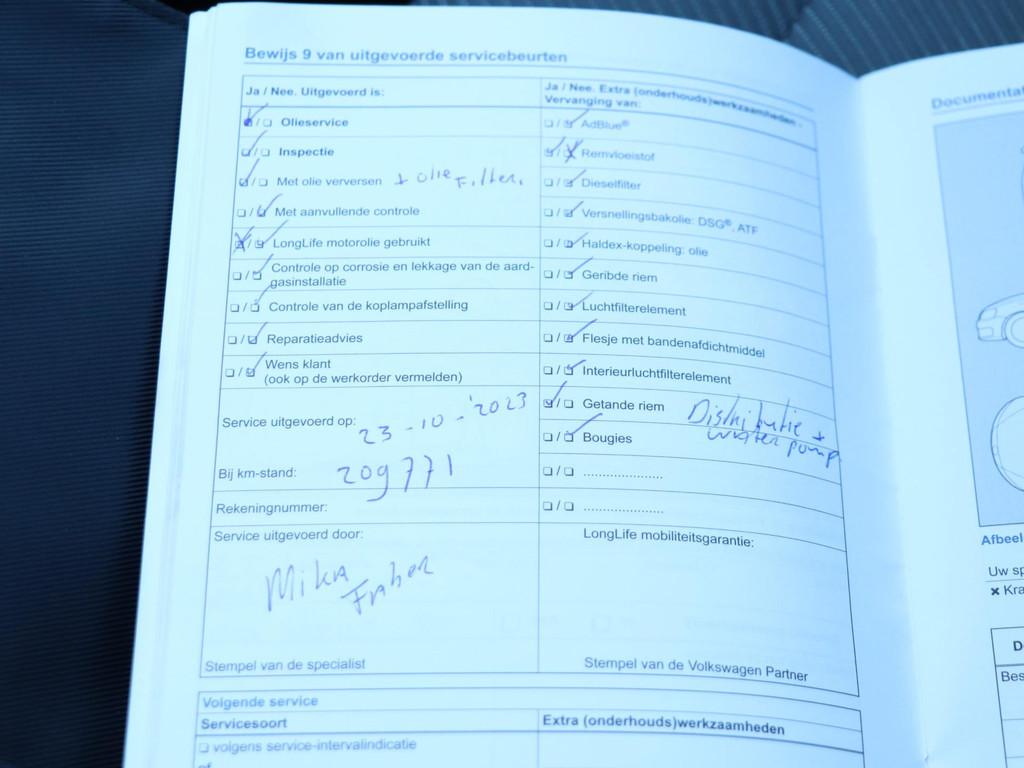 Bewijs 9 van uitgevoerde servicebeurten
Ja / Nee. Uitgevoerd is:
Olieservice
Inspectie
Met olie verversen + olie Filter.
Met aanvullende controle
LongLife motorolie gebruikt
Controle op corrosie en lekkage van de aard-
gasinstallatie
Controle van de koplampafstelling
Reparatieadvies
Wens klant
(ook op de werkorder vermelden)
Service uitgevoerd op: 23-10-'2023
Bij km-stand: 209771
Rekeningnummer:
Service uitgevoerd door:
Mika
Stempel van de specialist
Ja / Nee. Extra (onderhouds)werkzaamheden -
Vervanging van:
AdBlue®
Remvloeistof
Dieselfilter
Versnellingsbakolie: DSG®, ATF
Haldex-koppeling: olie
Geribde riem
Luchtfilterelement
Flesje met bandenafdichtmiddel
Interieurluchtfilterelement
Getande riem Distributie +
waterpomp
Bougies
......................
......................
LongLife mobiliteitsgarantie:
Stempel van de Volkswagen Partner
Volgende service
Servicesoort
Extra (onderhouds)werkzaamheden
volgens service-intervalindicatie
of
Afbeel
Uw sp
× Kra
D
Bes